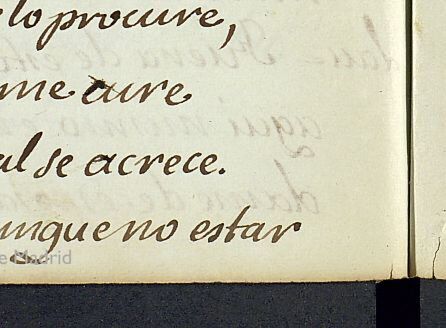 elo procure,
me cure
al se acrece.
unque no estar
e Madrid